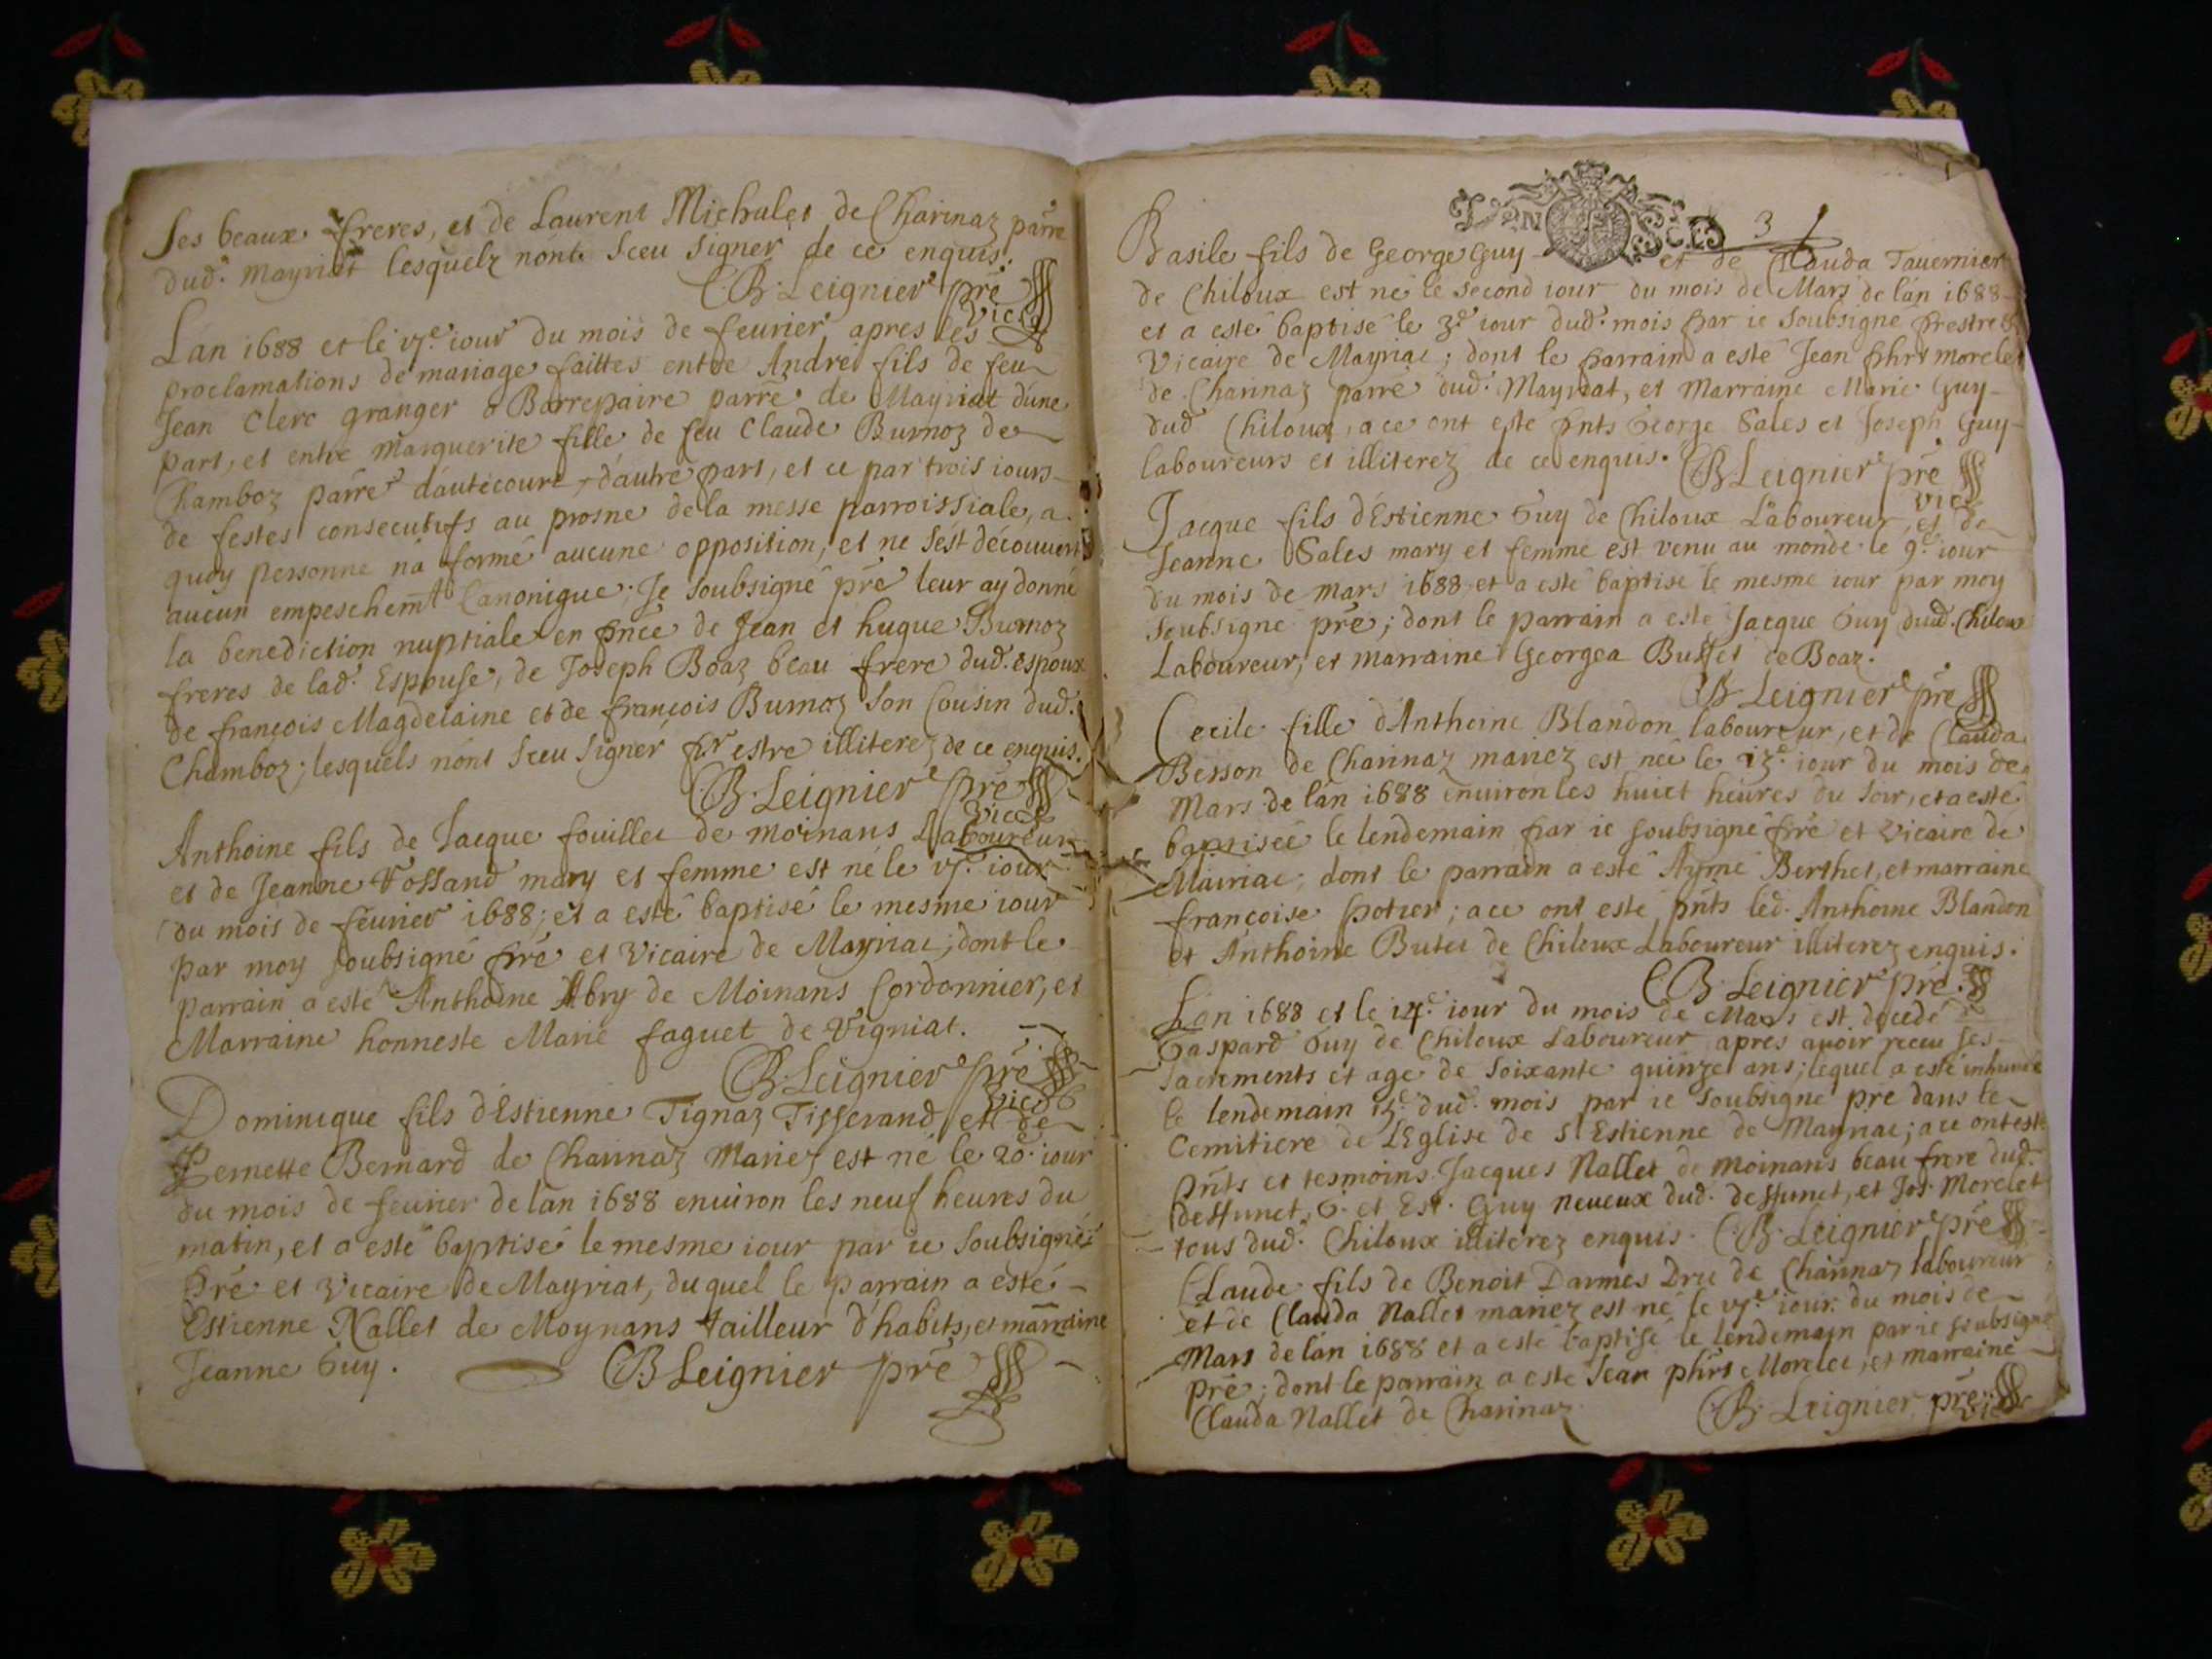 ses beaux freres, et de Laurent Michalet de Charinaz parre
dud. Mayriat lesquelz nónt sceu signer de ce enquis.
CB. Leignier pre
vicre
Lán 1688 et le 17e. iour du mois de feurier apres les
proclamations de mariage faittes entre André fils de feu
Jean Clerc granger a Barrepaire parre. de Mayriat dúne
part, et entre Marguerite fille de feu Claude Burnoz de
Chamboz parre dáutecourt, d'autre part, et ce par trois iours
de festes consecutifs au prosne de la messe parroissiale, a
quoy personne ná formé aucune opposition, et ne sést découuert
aucun empeschemt Canonique; Je soubsigné pre leur ay donné
la benediction nuptiale en pnce de Jean et hugue Burnoz
freres de lad. Espouse, de Joseph Boaz beau frere dud. espoux
de françois Magdelaine et de françois Burnoz son Cousin dud.
Chamboz; lesquels nónt sceu signer pr estre illiterez de ce enquis.
CB. Leignier pre
vicre
Anthoine fils de Jacque fouillet de moinans Laboureur
et de Jeanne Vossand mary et femme est né le 17e. iour
du mois de féurier 1688; et a esté baptisé le mesme iour
par moy soubsigné pre et Vicaire de Mayriat; dont le
parrain a esté Anthoine Abry de Moinans Cordonnier, et
Marraine honneste Marie faguet de Vigniat.
CB. Leignier pre
vicre
Dominique fils d'Estienne Tignaz Tisserand et de
Pernette Bernard de Charinaz Mariez est né le 20e. iour
du mois de feurier de lán 1688 enuiron les neuf heures du
matin, et a esté baptisé le mesme iour par ie soubsigné
Pre et Vicaire de Mayriat, duquel le parrain a esté
Estienne Nallet de Moynans tailleur d'habits, et marraine
Jeanne Guy.
CB Leignier pre
3
Basile fils de George Guy et de Clauda Tauernier
de Chiloux est né le second iour du mois de Mars de lán 1688
et a esté baptisé le 3e iour dud. mois par ie soubsigné prestre &
Vicaire de Mayriat; dont le parrain a esté Jean phrt morelet
de Charinaz parre dud. Mayriat, et Marraine Marie Guy
dud Chiloux, a ce ont esté pnts George Sales et Joseph Guy
laboureurs et illiterez de ce enquis.
CB Leignier pre
vicre
Jacque fils d'Estienne Guy de Chiloux Laboureur, et de
Jeanne Sales mary et femme est venu au monde le 9e iour
du mois de mars 1688 et a esté baptisé le mesme iour par moy
soubsigné pre; dont le parrain a esté Jacque Guy dud. Chiloux
Laboureur, et marraine Georgea Buffet de Boaz.
CB Leignier pre
Cecile fille d'Anthoine Blandon laboureur, et de Clauda
Besson de Charinaz mariez est née le 13e. iour du mois de
Mars de lán 1688 enuiron les huict heures du soir, et a esté
baptiseé le lendemain par ie soubsigné pre et Vicaire de
Mairiat; dont le parrain a esté Aymé Berthet, et marraine
françoise potier; a ce ont esté pnts led. Anthoine Blandon
et Anthoine Butet de Chiloux Laboureur illiterez enquis.
CB. Leignier pre.
Lón 1688 et le 14e. iour du mois de Mars est decedé
Gaspard Guy de Chiloux Laboureur apres auoir receu ses
sacrements et agé de soixante quinze ans; lequel a esté inhumé
le lendemain 15e. dud. mois par ie soubsigné pre dans le
Cemitiere de L'Eglise de St Estienne de Mayriat; a ce ont esté
pnts et tesmoins Jacques Nallet de moinans beau frere dud.
deffunct, G. et Est. Guy neueux dud. deffunct, et Jos. Morelet
tous dud. Chiloux illiterez enquis. CB. Leignier pre
Claude fils de Benoit Darmes Dru de Charinaz laboureur
et de Clauda Nallet mariez est né le 17e. iour du mois de
Mars de lán 1688 et a esté baptisé le lendemain par ie soubsigné
pre; dont le parrain a esté Jean phrt Morelet, et marraine
Clauda Nallet de Charinaz
CB. Leignier pre
vicre